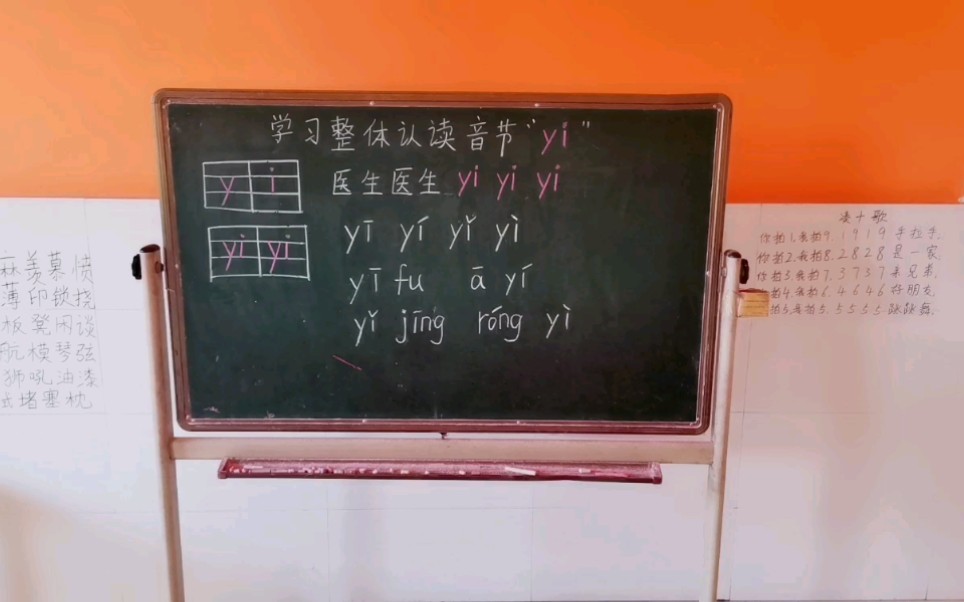 学习整体认读音节“yi”
y i
医生医生 yi yi yi
yi yi
yī yí yǐ yì
yī fu ā yí
yǐ jīng róng yì
羡慕 愤
薄 印 锁 挠
板 凳 闲 谈
航 模 琴 弦
狮 吼 油 漆
堵 塞 枕
凑十歌
你拍1.我拍9 1919手拉手.
你拍2.我拍8.2828是一家
你拍3.我拍7.3737亲兄弟.
拍4.我拍6.4646好朋友
拍5.我拍5.5555跳跳舞.